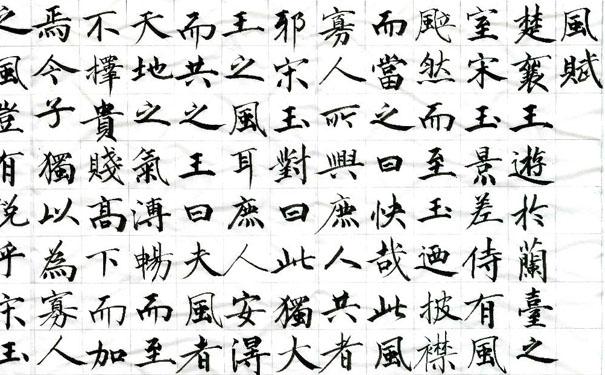 風賦
楚襄王遊於蘭臺之
室宋玉景差侍有風
颯然而至玉迺披襟
而當之曰快哉此風
寡人所與庶人共者
邪宋玉對曰此獨大
王之風耳庶人安得
而共之王曰夫風者
天地之氣溥暢而至
不擇貴賤高下而加
焉今子獨以為寡人
之風豈有說乎宋玉